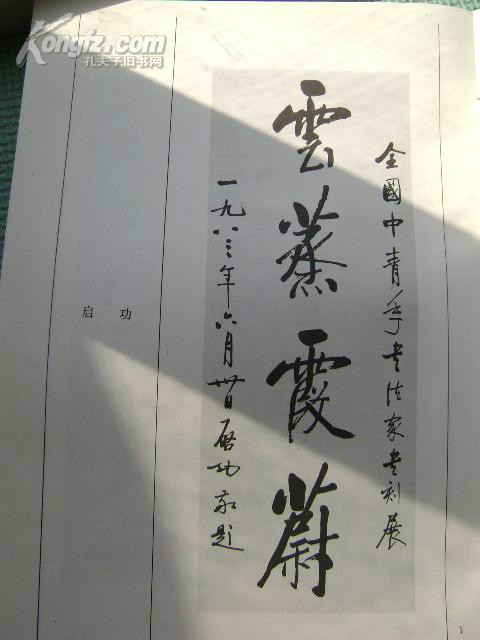 Kongfz.com
孔夫子旧书网
全國中青年书法家书刻展
雲蒸霞蔚
一九八三年六月卅日启功敬题
启功
1